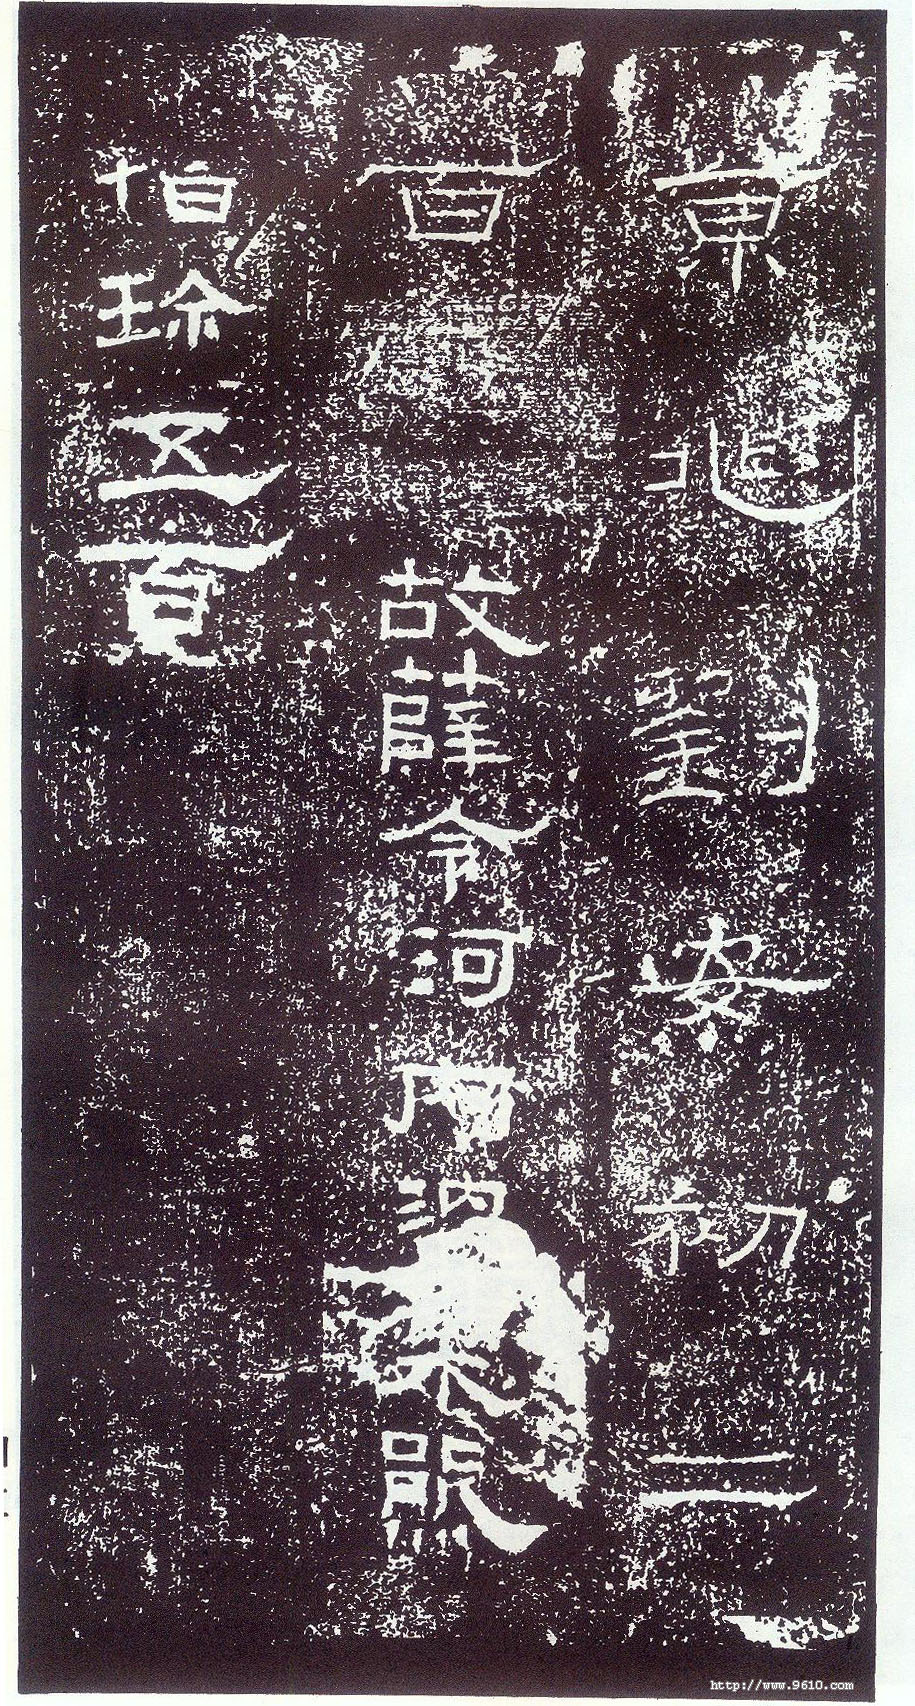 京兆劉安初二
百 故薛令河內溫朱熊
伯珍五百
http://www.9610.com